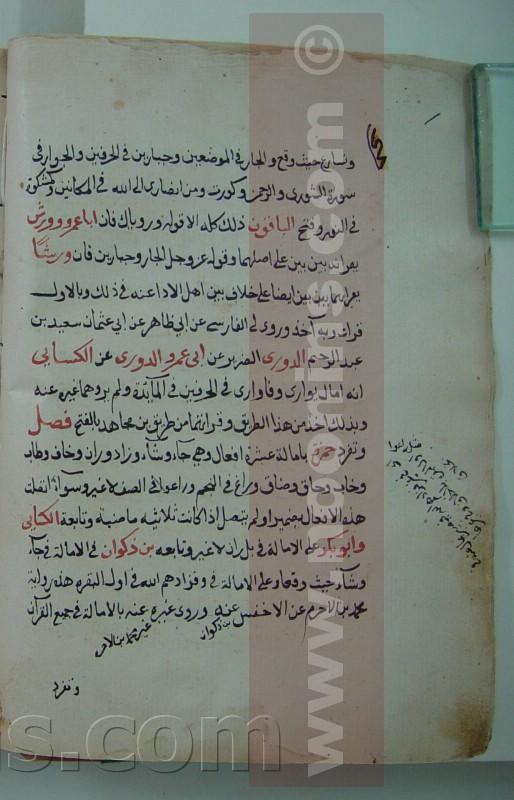 ونسارع حيث وقع والجار في الموضعين وجبارين في الحرفين والجوار في
سورة الشورى والرحمن وكورت ومن انصاري الى الله في المكانين وكمشكوة
في النور وفتح الباقون ذلك كله الا قوله ورؤياك فان ابا عمرو وورش
يقرانه بين بين على اصلهما وقوله عز وجل الجار وجبارين فان ورشًا
يقراهما بين بين ايضا على خلاف بين اهل الاداء عنه في ذلك وبالاول
قرات وبه آخذ وروى لي الفارسي عن ابي طاهر عن ابي عثمان سعيد بن
عبد الرحيم الدوري الضرير عن ابي عمرو الدوري عن الكسايي
انه امال يواري وفاواري في الحرفين في المآئدة ولم يروهما غيره عنه
وبذلك اخذ من هذا الطريق وقراتهما من طريق بن مجاهد بالفتح فصل
وتفرد حمزة بامالة عشرة افعال وهي جآء وشآء وزاد وران وخاف وطاب
وخاب وحاق وضاق وزاغ في النجم وزاغوا في الصف لا غير وسوآء اتصلت
هذه الافعال بضمير او لم يتصل اذا كانت ثلاثية ماضية وتابعه الكسايي
وابو بكر على الامالة في بل ران لا غير وتابعه بن ذكوان في الامالة في جآء
وشآء حيث وقعا وعلى الامالة في فزادهم الله في اول البقره هذه رواية
محمد بن الاخرم عن الاخفش عنه وروى غيره عنه بالامالة في جميع القرآن
بن ذكوان
غير محمد بن الاخرم
وتفرد
www.ncontrss.com ©
s.com